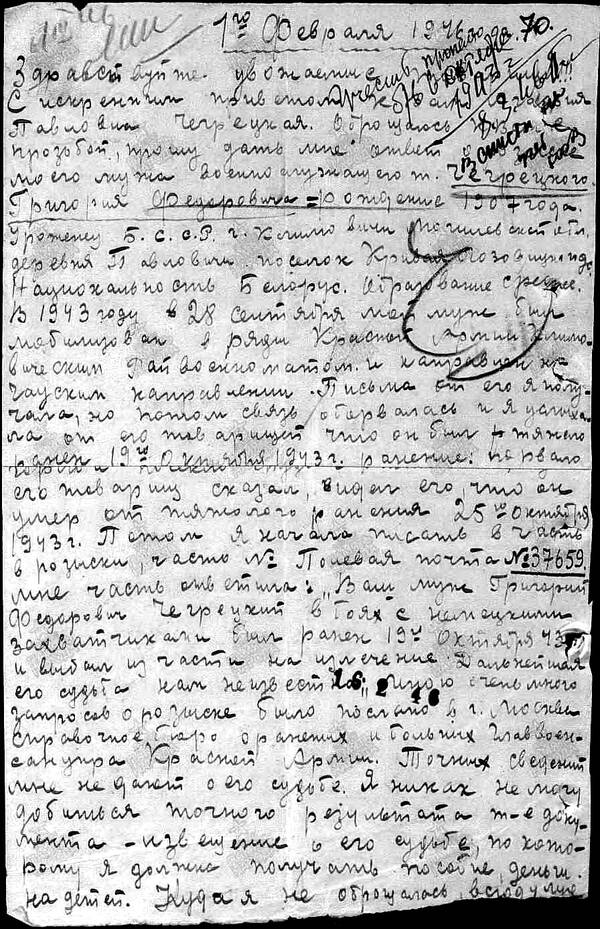 1го Февраля 1946 70.
Здравствуйте уважаемые
С искренним приветом к Вам
Павловна Чегрецкая. Обращаюсь к
прозьбой, прошу дать мне ответ
моего мужа военнослужащего т. Чегрецкого
Григория Федоровича = рождение 1907 года.
Уроженец Б.С.С.Р. г. Климовичи Могилевской обл.
деревня Павловичи поселок Кривая
Национальность Белорус. Образование среднее.
В 1943 году в 28 сентября мой муж был
мобилизован в ряды Красной Армии Климо-
вическим Райвоенкоматом. и направлен на
чауским направлении. Письма от его я полу-
чала, но потом связь оборвалась и я услыха-
ла от его товарищей что он был тяжело
ранен 19го Октября 1943 г. ранение:
его товарищ сказал, видел его, что он
умер от тяжолого ранения 25го Октября
1943 г. Потом я начала писать в часть
в розыски, часть № Полевая почта №37659.
мне часть ответила: „Ваш муж Григорий
Федорович Чегрецкий в боях с немецкими
захватчиками был ранен 19го Октября 43 г.
и выбыл из части на излечение Дальнейшая
его судьба нам неизвестна“ мною очень много
16 2 46
запросов о розыске было послано в г. Москва
справочное бюро о раненых и больных Главвоен-
санупра Красной Армии. Точних сведений
мне не дают о его судьбе. Я никак не могу
добиться точного результата т-е доку-
мента - извещение о его судьбе, по кото-
рому я должна получать пособие, деньги.
на детей. Куда я не оброщалась, всюду мне